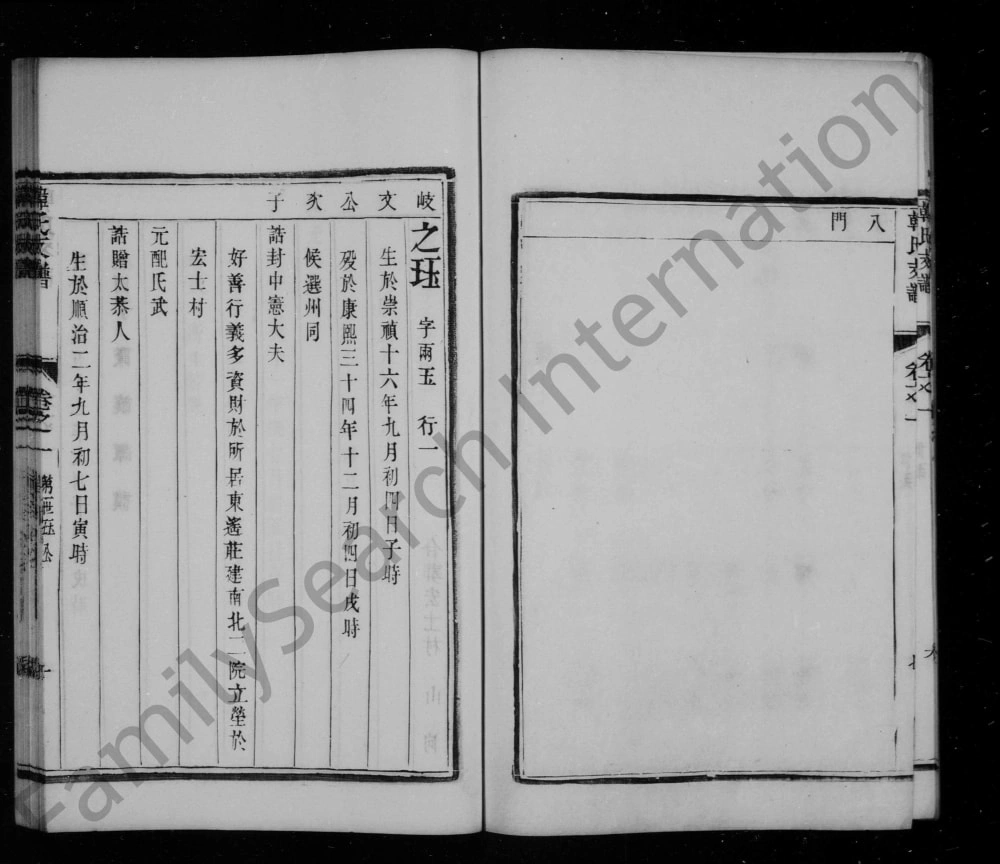 韓氏支譜
八門
岐文公次子
之珏 字兩玉 行一
生於崇禎十六年九月初四日子時
歿於康熙三十四年十二月初四日戌時
候選州同
誥封中憲大夫
好善行義多資財於所居東遙莊建南北二院立塋於
宏士村
元配氏武
誥贈太恭人
生於順治二年九月初七日寅時
韓氏支譜
卷之二
FamilySearch International